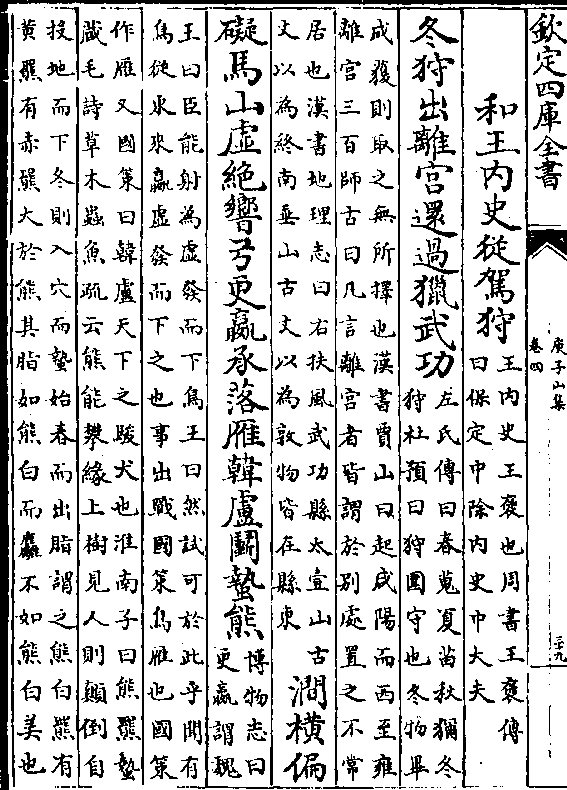 欽定四庫全書
庾子山集
卷四
二十九
和王内史從駕狩
王内史王褒也周書王褒傳
曰保定中除内史中大夫
冬狩出離宫還過獵武功
左氏傳曰春蒐夏苗秋獮冬
狩杜預曰狩圍守也冬物畢
成獲則取之無所擇也漢書賈山曰起咸陽而西至雍
離宫三百師古曰凡言離宫者皆謂於别處置之不常
居也漢書地理志曰右扶風武功縣太壹山古
文以為終南垂山古文以為敦物皆在縣東
澗横偏
礙馬山虛絶響弓更嬴承落雁韓盧鬭蟄熊
博物志曰
更嬴謂魏
王曰臣能射為虛發而下鳥王曰然試可於此乎聞有
鳥從東來嬴虛發而下之也事出戰國策鳥雁也國策
作雁又國策曰韓盧天下之駿犬也淮南子曰熊羆蟄
藏毛詩草木蟲魚疏云熊能攀緣上樹見人則顛倒自
投地而下冬則入穴而蟄始春而出脂謂之熊白羆有
黄羆有赤羆大於熊其脂如熊白而麤不如熊白美也